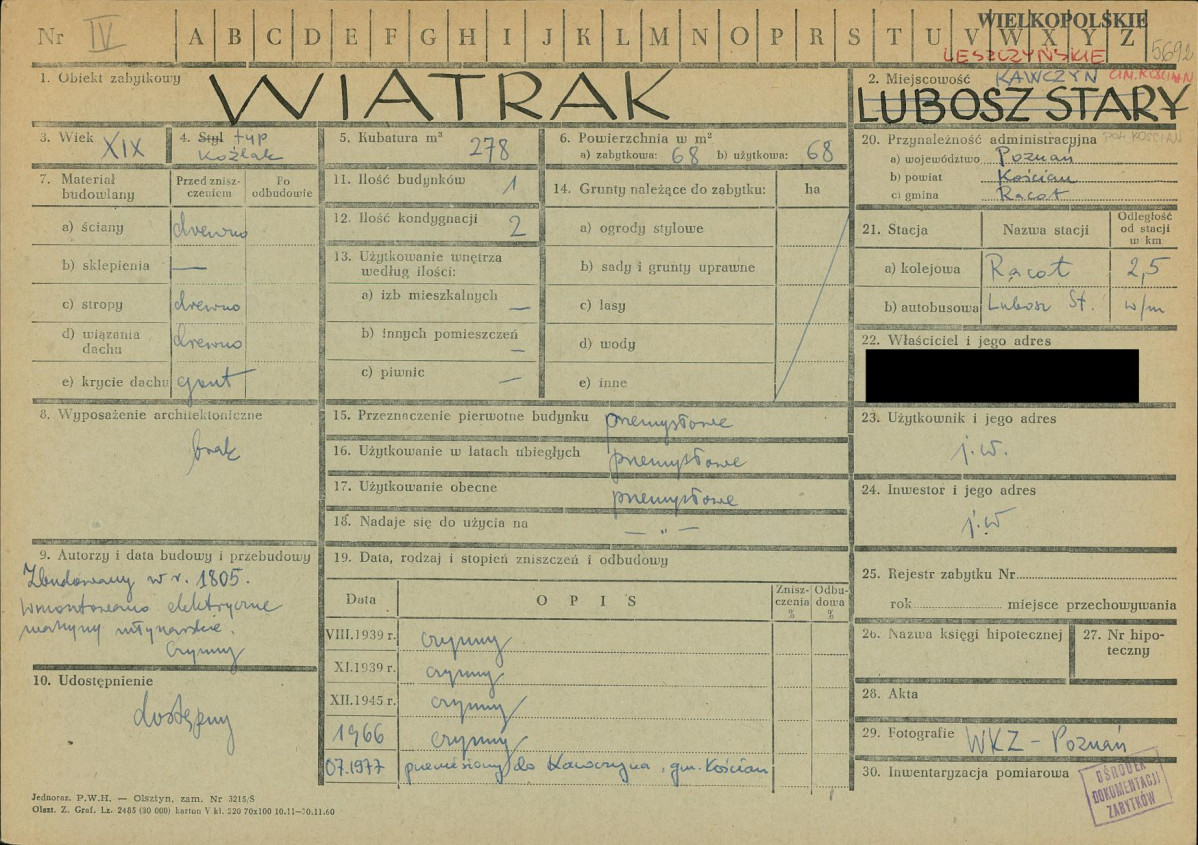 Nr IV A B C D E F G H I J K L M N O P R S T U V W X Y Z
WIELKOPOLSKIE
LESZCZYŃSKIE
5692
1. Obiekt zabytkowy
WIATRAK
2. Miejscowość KAWCZYN GM. KOŚCIAN
LUBOSZ STARY
3. Wiek XIX
4. Styl typ
Koźlak
5. Kubatura m³ 278
6. Powierzchnia w m²
a) zabytkowa: 68 b) użytkowa: 68
7. Materiał budowlany
Przed zniszczeniem
Po odbudowie
a) ściany drewno
b) sklepienia —
c) stropy drewno
d) wiązania dachu drewno
e) krycie dachu gont
8. Wyposażenie architektoniczne
brak
9. Autorzy i data budowy i przebudowy
Zbudowany w r. 1805.
Wmontowano elektryczne
maszyny młynarskie.
Czynny
10. Udostępnienie
dostępny
11. Ilość budynków 1
12. Ilość kondygnacji 2
13. Użytkowanie wnętrza
według ilości:
a) izb mieszkalnych —
b) innych pomieszczeń —
c) piwnic —
14. Grunty należące do zabytku: ha
a) ogrody stylowe
b) sady i grunty uprawne
c) lasy
d) wody
e) inne
15. Przeznaczenie pierwotne budynku przemysłowe
16. Użytkowanie w latach ubiegłych przemysłowe
17. Użytkowanie obecne przemysłowe
18. Nadaje się do użycia na — „ —
19. Data, rodzaj i stopień zniszczeń i odbudowy
Data OPIS Zniszczenia % Odbudowa %
VIII.1939 r. czynny
XI.1939 r. czynny
XII.1945 r. czynny
1966 czynny
07.1977 przeniesiony do Kawczyna, gm. Kościan
20. Przynależność administracyjna pow. KOŚCIAN
a) województwo Poznań
b) powiat Kościan
c) gmina Racot
21. Stacja Nazwa stacji Odległość od stacji w km
a) kolejowa Racot 2,5
b) autobusowa Lubosz St. w/m
22. Właściciel i jego adres
23. Użytkownik i jego adres
j.w.
24. Inwestor i jego adres
j.w
25. Rejestr zabytku Nr
rok miejsce przechowywania
26. Nazwa księgi hipotecznej
27. Nr hipoteczny
28. Akta
29. Fotografie WKZ - Poznań
30. Inwentaryzacja pomiarowa
OŚRODEK
DOKUMENTACJI
ZABYTKÓW
Jednoraz. P.W.H. — Olsztyn, zam. Nr 3215/S
Olszt. Z. Graf. Lz. 2485 (30 000) karton V kl. 220 70x100 10.11—30.11.60